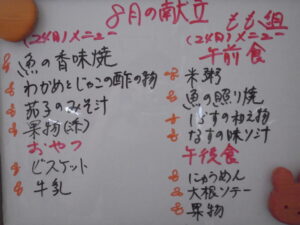 8月の献立
(24日)メニュー
魚の香味焼
わかめとじゃこの酢の物
茄子のみそ汁
果物(本)
おやつ
ビスケット
牛乳
もも組
(24日)メニュー
午前食
米粥
魚の照り焼
しらすの和え物
なすの味ソ汁
午後食
にゅうめん
大根ソテー
果物